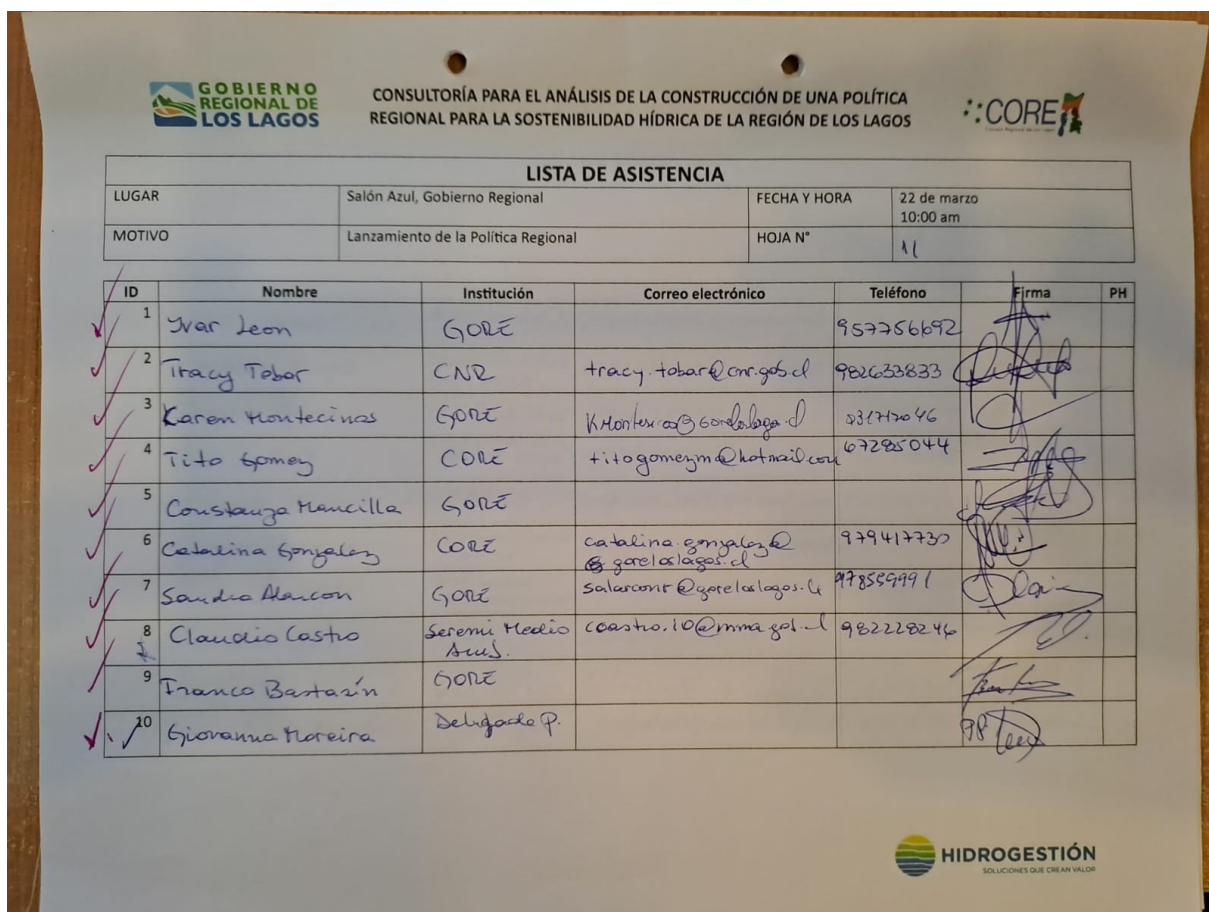 GOBIERNO
REGIONAL DE
LOS LAGOS
CONSULTORÍA PARA EL ANÁLISIS DE LA CONSTRUCCIÓN DE UNA POLÍTICA
REGIONAL PARA LA SOSTENIBILIDAD HÍDRICA DE LA REGIÓN DE LOS LAGOS
CORE
LISTA DE ASISTENCIA
LUGAR Salón Azul, Gobierno Regional FECHA Y HORA 22 de marzo
10:00 am
MOTIVO Lanzamiento de la Política Regional HOJA N° 11
ID Nombre Institución Correo electrónico Teléfono Firma PH
1 Ivar Leon GORE 957756692
2 Tracy Tobar CNR tracy.tobar@cnr.gob.cl 982633833
3 Karen Montecinos GORE
4 Tito Gomez CORE titogomezm@hotmail.com 67285044
5 Constanza Mancilla GORE
6 Catalina Gonzalez CORE catalina.gonzalez@ 979417730
goreloslagos.cl
7 Sandra Alarcon GORE 978559991
8 Claudio Castro Seremi Medio 982228246
9 Franco Bastazín GORE
10 Giovanna Moreira
HIDROGESTIÓN
SOLUCIONES QUE CREAN VALOR